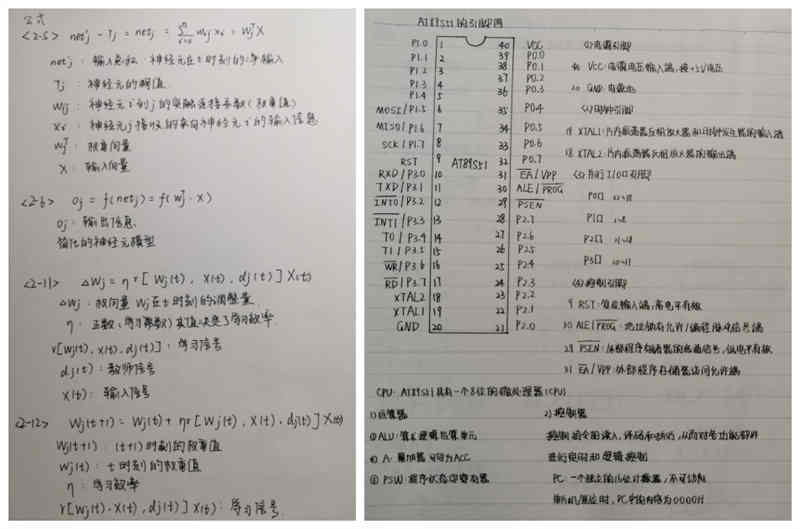 公式
<2-5> net'j - Tj = netj = Σ wij xi = WjᵀX
net'j：输入总和，神经元在t时刻的净输入
Tj：神经元的阈值
wij：神经元i到j的突触连接系数(权重值)
xi：神经元j接收的来自神经元i的输入信息
Wjᵀ：权重向量
X：输入向量
<2-6> oj = f(netj) = f(Wjᵀ·X)
oj：输出信息
简化的神经元模型
<2-11> ΔWj = ηr[Wj(t), X(t), dj(t)]X(t)
ΔWj：权向量Wj在t时刻的调整量
η：正数(学习常数)其值决定了学习效率
r[Wj(t), X(t), dj(t)]：学习信号
dj(t)：教师信号
X(t)：输入信号
<2-12> Wj(t+1) = Wj(t) + ηr[Wj(t), X(t), dj(t)]X(t)
Wj(t+1)：(t+1)时刻的权重值
Wj(t)：t时刻的权重值
η：学习效率
r[Wj(t), X(t), dj(t)]X(t)：学习信号
AT89S51的引脚图
P1.0 1 40 VCC
P1.1 2 39 P0.0
P1.2 3 38 P0.1
P1.3 4 37 P0.2
P1.4 5 36 P0.3
MOSI/P1.5 6 35 P0.4
MISO/P1.6 7 34 P0.5
SCK/P1.7 8 33 P0.6
RST 9 AT89S51 32 P0.7
RXD/P3.0 10 31 EA/VPP
TXD/P3.1 11 30 ALE/PROG
INT0/P3.2 12 29 PSEN
INT1/P3.3 13 28 P2.7
T0/P3.4 14 27 P2.6
T1/P3.5 15 26 P2.5
WR/P3.6 16 25 P2.4
RD/P3.7 17 24 P2.3
XTAL2 18 23 P2.2
XTAL1 19 22 P2.1
GND 20 21 P2.0
(1)电源引脚
40 VCC：电源电压输入端，接+5V电压
20 GND：电源地
(2)时钟引脚
19 XTAL1：片内振荡器反相放大器和时钟发生器的输入端
18 XTAL2：片内振荡器反相放大器的输出端
(3)并行I/O口引脚
P0口 32~39
P1口 1~8
P2口 21~28
P3口 10~17
(4)控制引脚
9 RST：复位输入端，高电平有效
30 ALE/PROG：地址锁存允许/编程脉冲信号端
29 PSEN：外部程序存储器的选通信号，低电平有效
31 EA/VPP：外部程序存储器访问允许端
CPU：AT89S51具有一个8位的微处理器(CPU)
1)运算器
①ALU：算术逻辑运算单元
② A：累加器 可写为ACC
③ PSW：程序状态字寄存器
2)控制器
控制指令的读入、译码和执行，从而对各功能部件
进行定时和逻辑控制
PC：一个独立的16位计数器，不可访问
单片机复位时，PC中的内容为0000H